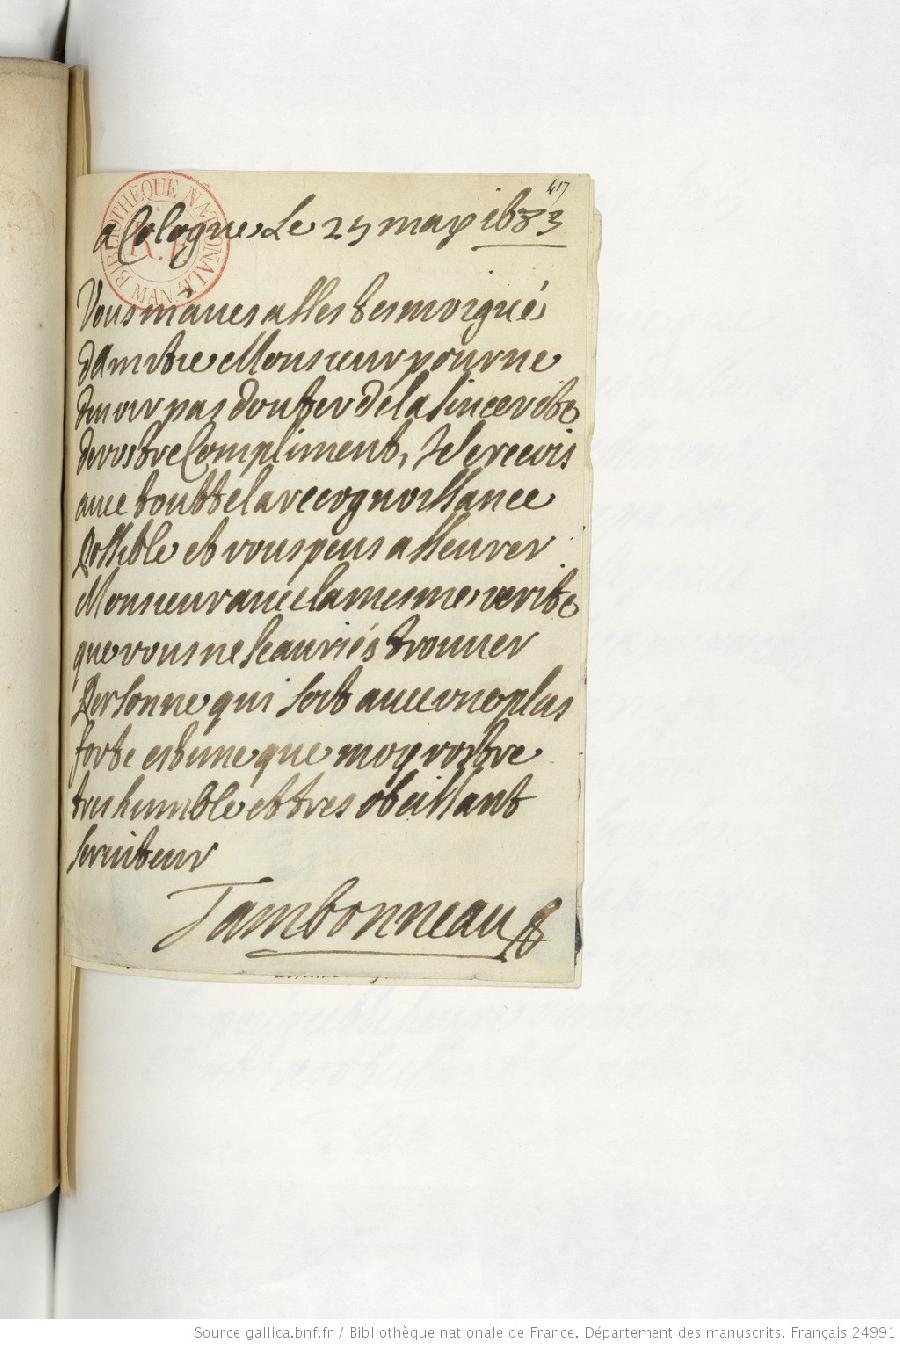 417
a Cologne Le 25 may 1683
Vous maues asses tesmoigné
damitie Monsieur pour ne
deuoir pas douter de la sincerité
de vostre Compliment, Je le recois
auec toutte la recognoissance
possible et vous peus asseurer
Monsieur auec la mesme verité
que vous ne scauriés trouuer
Personne qui soit auec vne plus
forte estime que moy vostre
tres humble et tres obeissant
seruiteur
Tambonneau
BIBLIOTHÈQUE NATIONALE
MAN.
Source gallica.bnf.fr / Bibliothèque nationale de France. Département des manuscrits. Français 24991